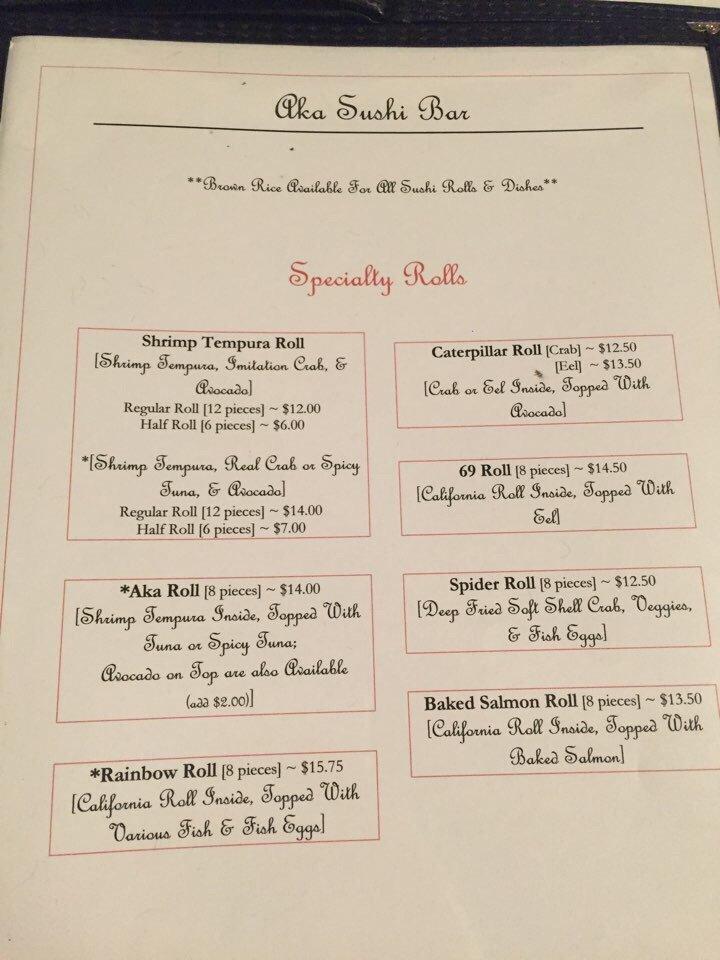 Aka Sushi Bar
**Brown Rice Available For All Sushi Rolls & Dishes**
Specialty Rolls
Shrimp Tempura Roll
[Shrimp Tempura, Imitation Crab, &
Avocado]
Regular Roll [12 pieces] ~ $12.00
Half Roll [6 pieces] ~ $6.00
*[Shrimp Tempura, Real Crab or Spicy
Tuna, & Avocado]
Regular Roll [12 pieces] ~ $14.00
Half Roll [6 pieces] ~ $7.00
*Aka Roll [8 pieces] ~ $14.00
[Shrimp Tempura Inside, Topped With
Tuna or Spicy Tuna;
Avocado on Top are also Available
(add $2.00)]
*Rainbow Roll [8 pieces] ~ $15.75
[California Roll Inside, Topped With
Various Fish & Fish Eggs]
Caterpillar Roll [Crab] ~ $12.50
[Eel] ~ $13.50
[Crab or Eel Inside, Topped With
Avocado]
69 Roll [8 pieces] ~ $14.50
[California Roll Inside, Topped With
Eel]
Spider Roll [8 pieces] ~ $12.50
[Deep Fried Soft Shell Crab, Veggies,
& Fish Eggs]
Baked Salmon Roll [8 pieces] ~ $13.50
[California Roll Inside, Topped With
Baked Salmon]